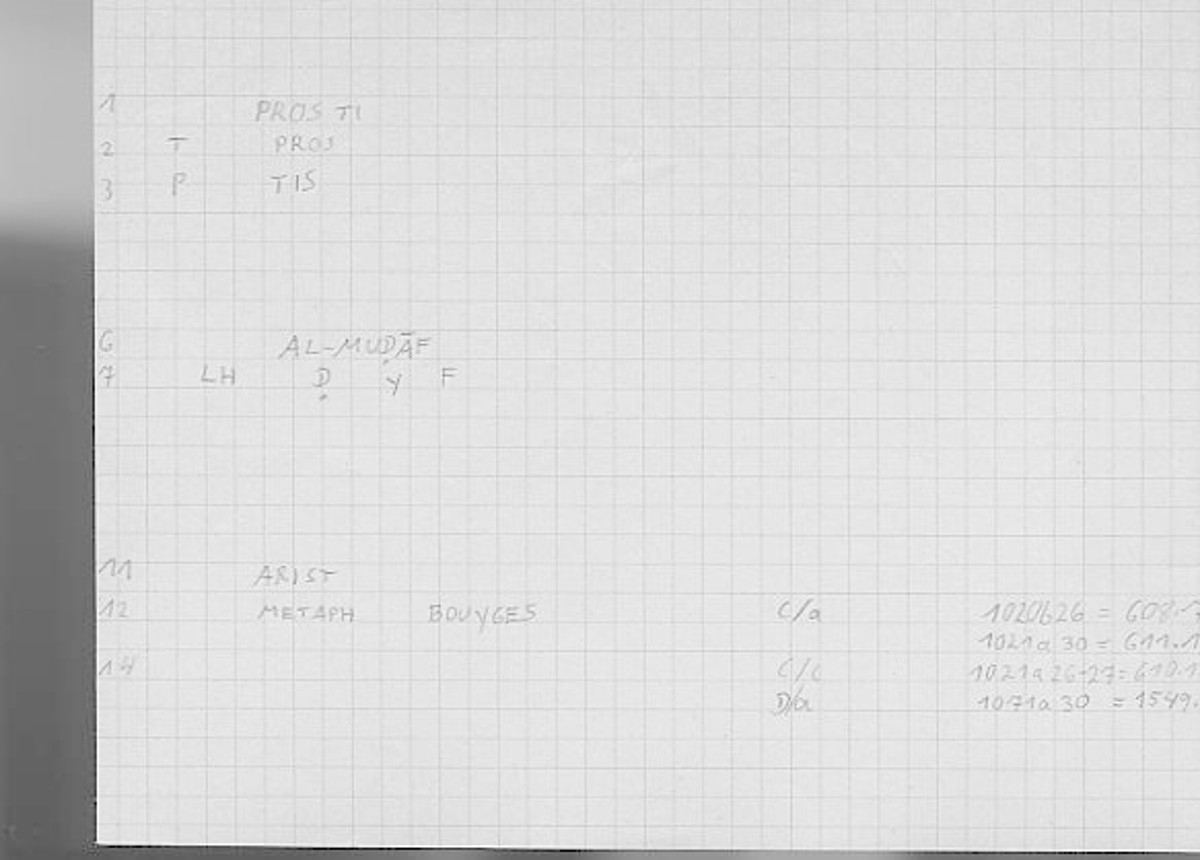 1 PROS TI
2 T PROS
3 P TIS
6 AL-MUḌĀF
7 LH Ḍ Y F
11 ARIST
12 METAPH BOUYGES C/a 1020b26 = 608.
1021a 30 = 611.1
14 C/c 1021a26-27= 610.1
D/a 1071a 30 = 1549.